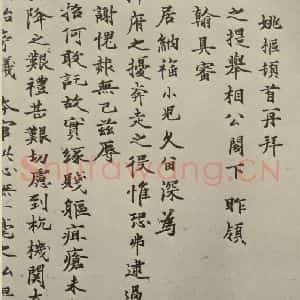 姚樞頓首再拜
之提舉相公閣下昨領
翰具審
居納福小兒久留深爲
府之擾奔走之役惟恐弗逮過
謝愧赧無已兹辱
招何敢託故實緣賤軀疽瘡未
降之艱禮甚艱切慮到杭機関
義
Shufawang.CN